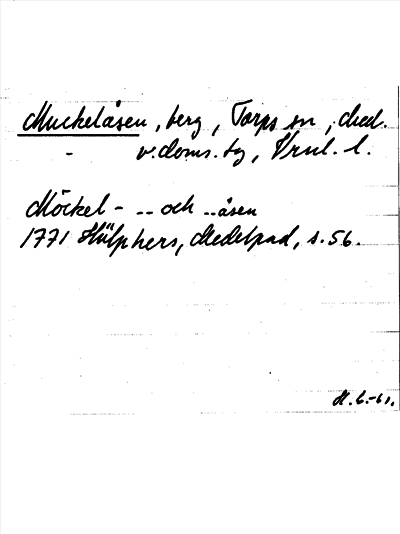 Muckelåsen, berg, Torps sn, Med.
- v. doms. tg, Vrnl. l.
Möckel- -- och --åsen
1771 Hülphers, Medelpad, s. 56.
M. 6.-61.